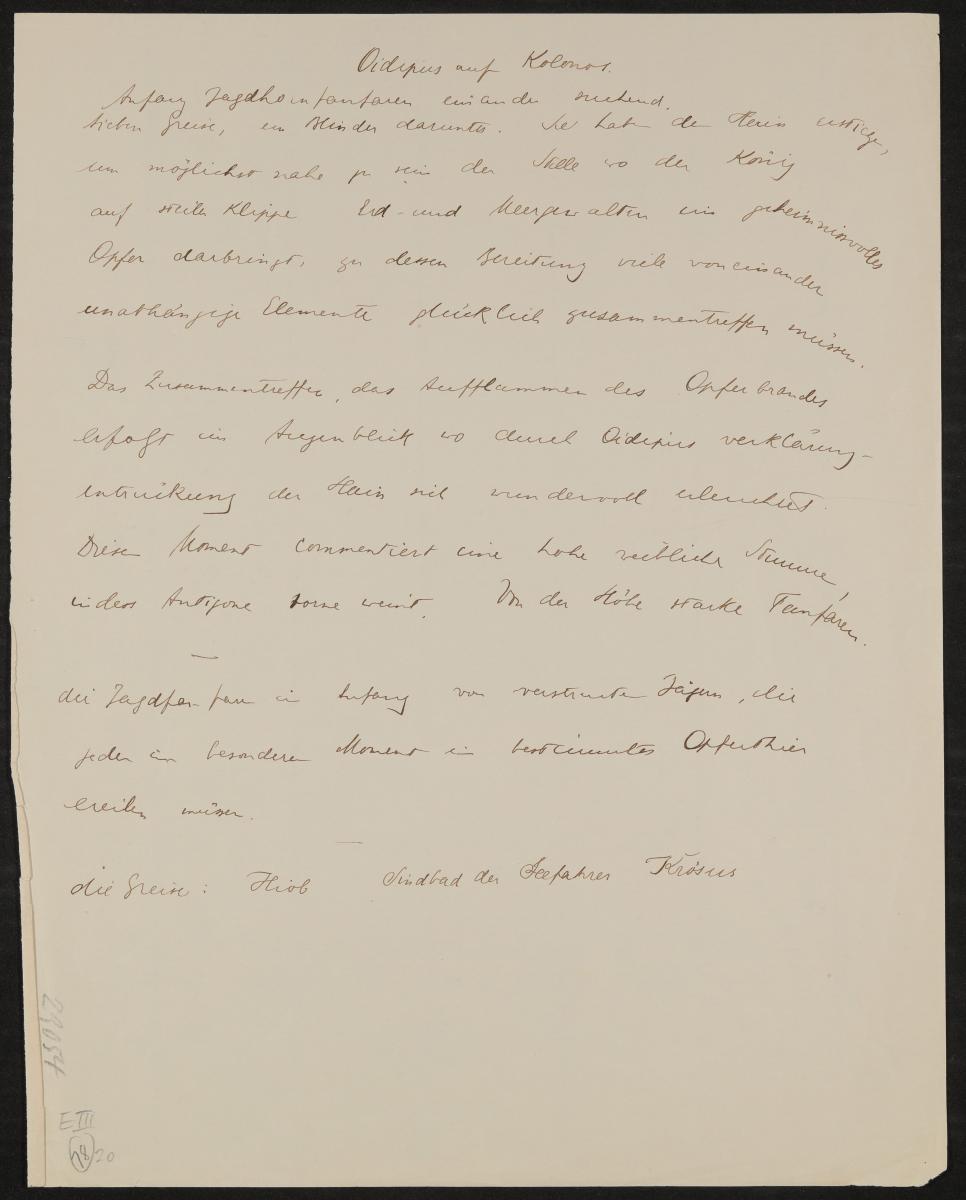 Oidipus auf Kolonos.
Anfang Jagdhornfanfaren einander suchend.
Sieben Greise, ein Blinder darunter. Sie haben den Hain erstiegen,
um möglichst nahe zu sein der Stelle wo der König
auf steiler Klippe Erd- und Meergewalten ein geheimnisvolles
Opfer darbringt, zu dessen Bereitung viele voneinander
unabhängige Elemente glücklich zusammentreffen müssen.
Das Zusammentreffen, das Aufflammen des Opferbrandes
erfolgt im Augenblick wo durch Oidipus verklärung-
entrückung der Hain sich wundervoll erleuchtet.
Diesen Moment commentiert eine hohe weibliche Stimme,
indess Antigone vorne weint. Von der Höhe starke Fanfaren.
—
die Jagdfanfare im Anfang von verstreuten Jägern, die
jeder im besonderen Moment ein bestimmtes Opferthier
ereilen müssen.
—
die Greise: Hiob Sindbad der Seefahrer Krösus
E III
20